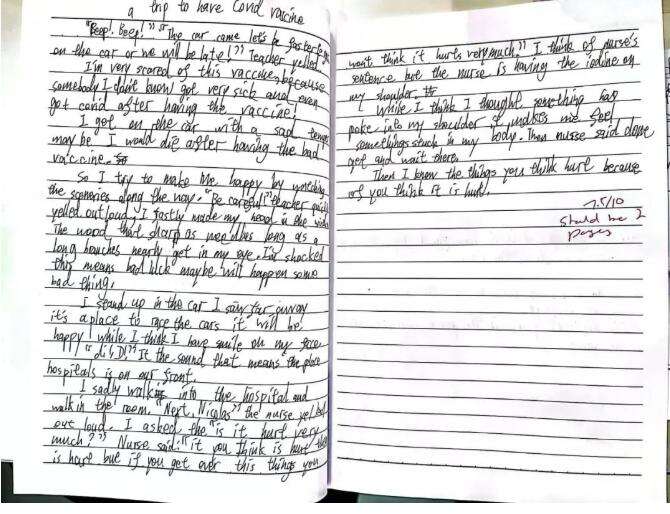 a trip to have Covid vaccine
"Beep! Beep!" "The car come let's be faster to go
on the car or we will be late!" Teacher yelled.
I'm very scared of this vaccine, because
somebody I don't know got very sick and even
got covid after having the vaccine!
I got on the car with a sad
may be I would die after having the bad
vaccine.
So I try to make me happy by watching
the sceneries along the way. "Be careful!" teacher quickly
yelled out loud, I fastly made my head in the
The wood that sharp as needles long as a
long branches nearly got in my eye. I'm shocked
this means bad luck maybe will happen some
bad thing.
I stand up in the car I saw far away
it's a place to race the cars it will be
happy! while I think I have smile on my face.
" It the sound that means the place
hospitals is on our front.
I sadly walk into the hospital and
walk in the room. "Next, Nicolas" the nurse yelled
out loud. I asked the "is it hurt very
much?" Nurse said: "it you think is hurt
is hurt but if you get over this things you
won't think it hurts very much." I think of nurse's
sentence but the nurse is having the iodine on
my shoulder.
While I think I thought something has
poke into my shoulder it makes me feel
somethings stuck in my body. Then nurse said done
get and wait there.
Then I know the things you think hurt because
of you think it is hurt.
7.5/10
should be 2
pages